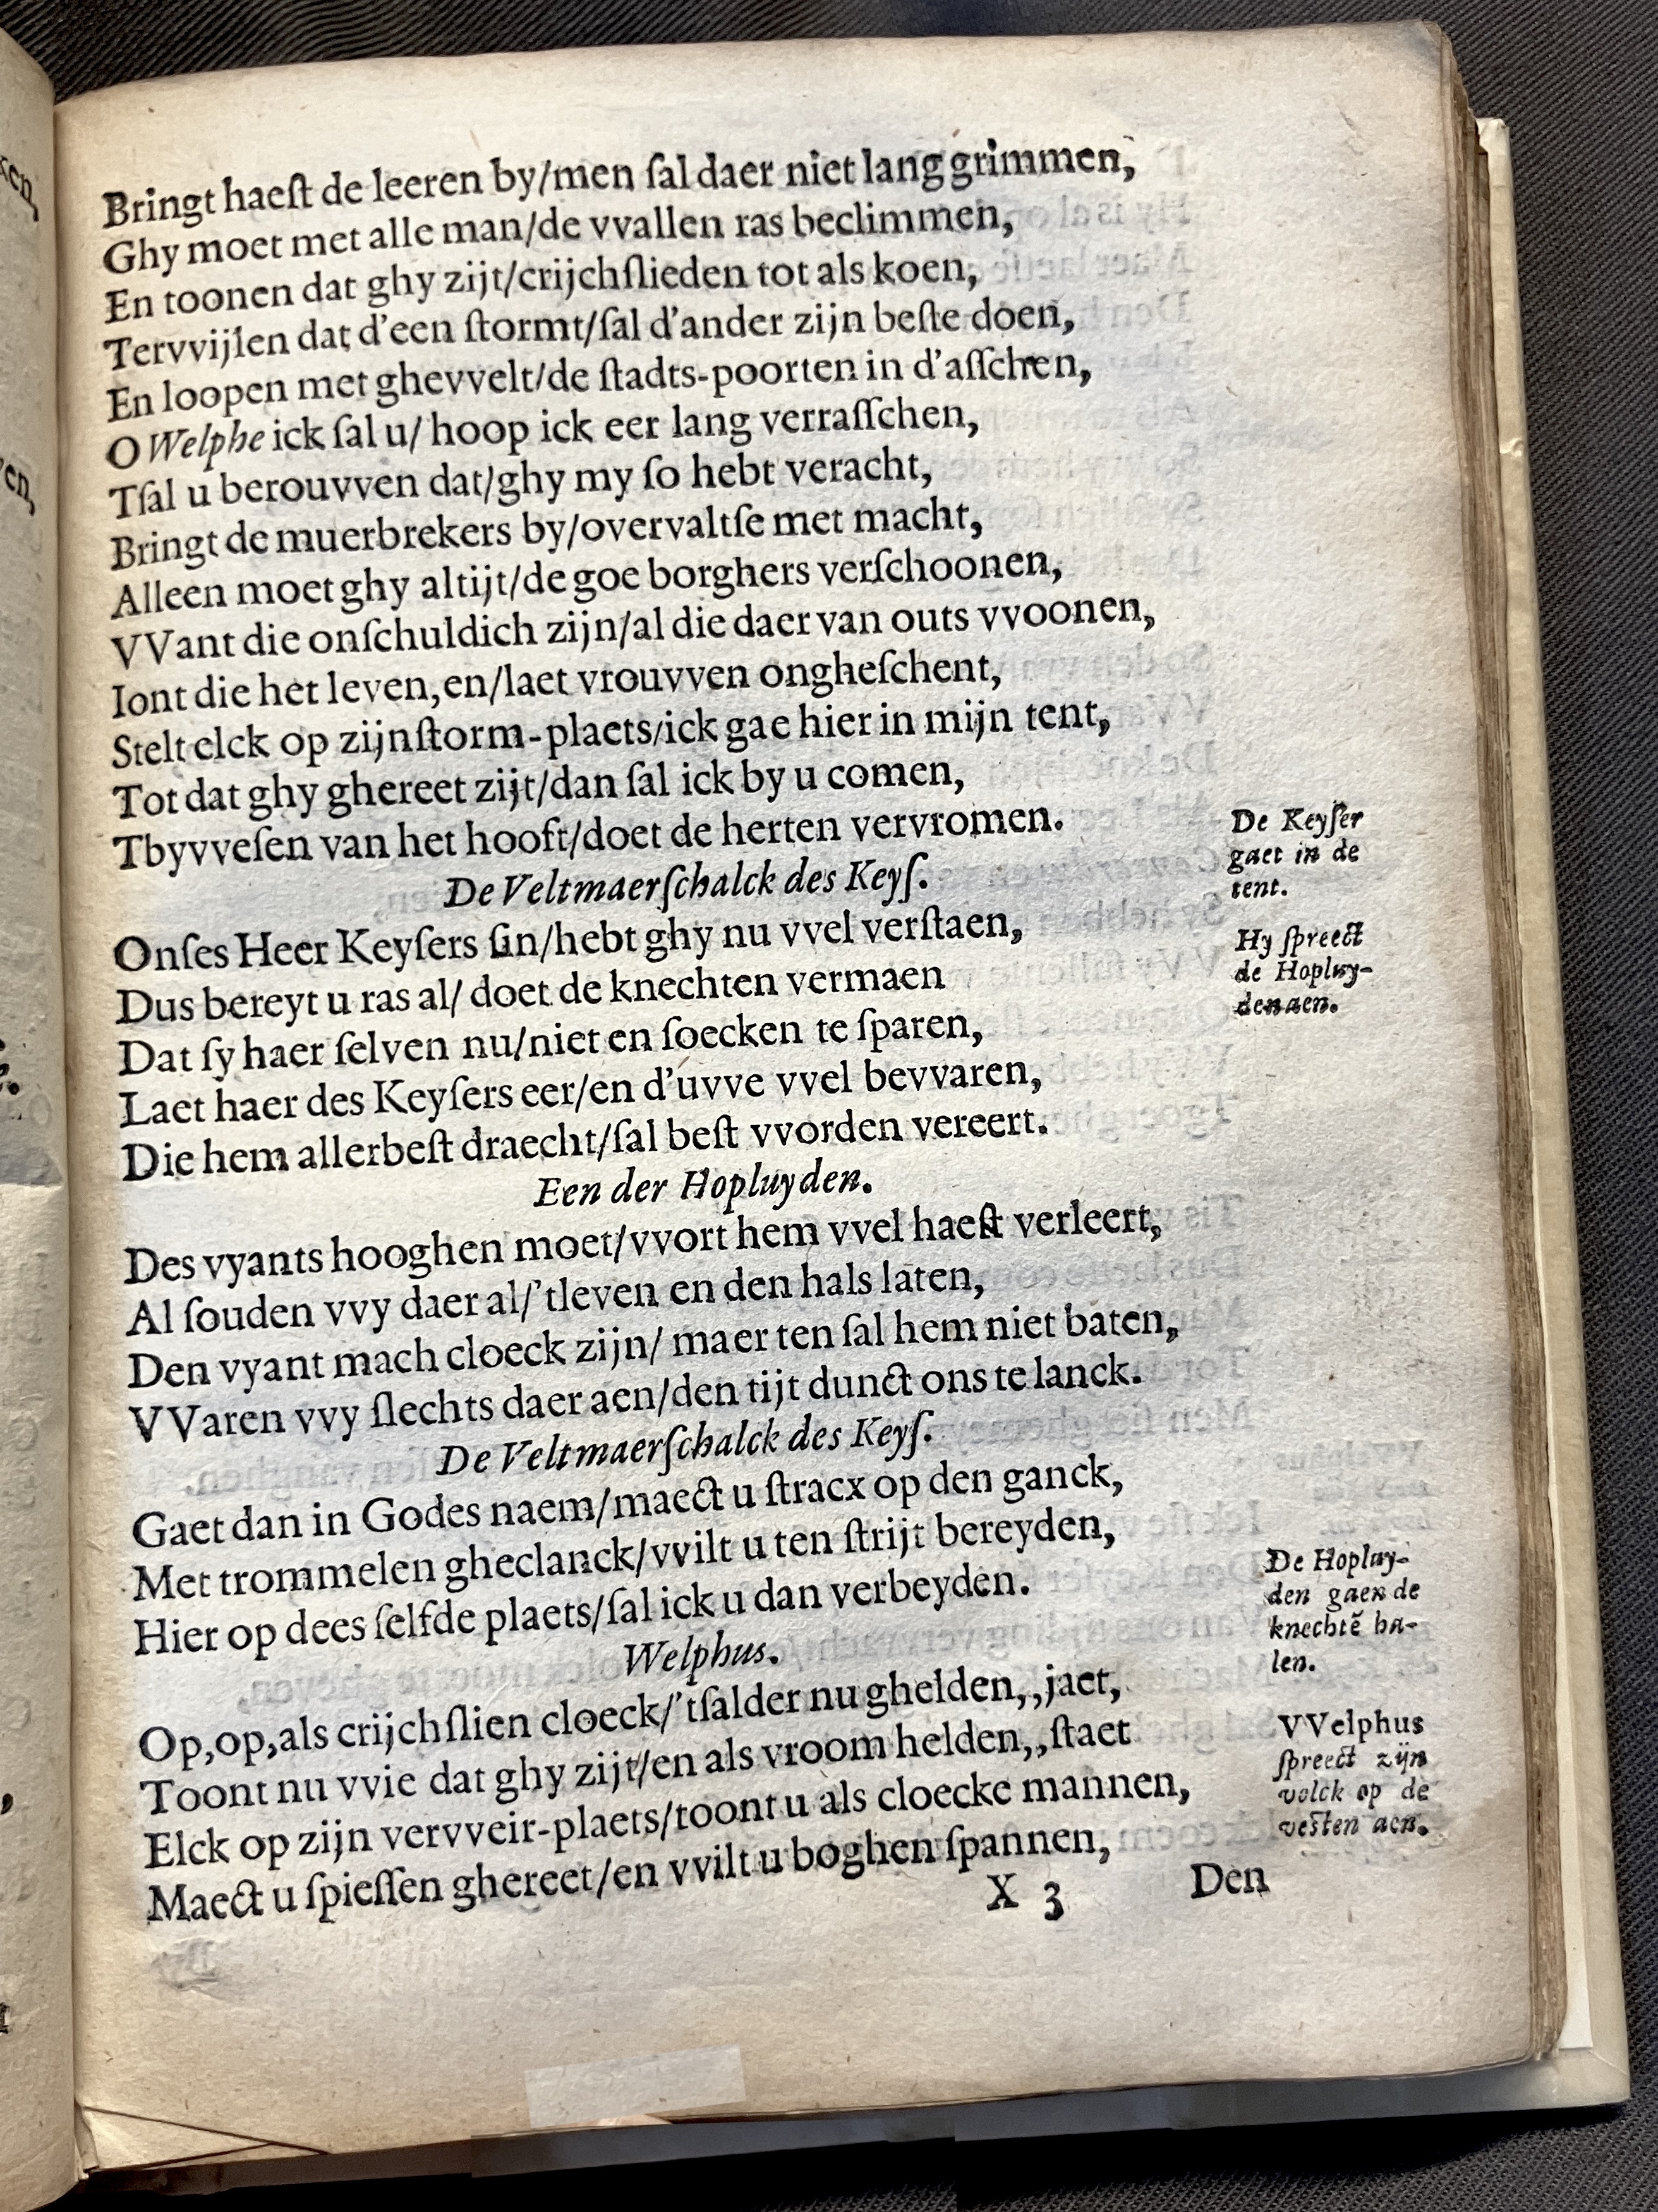 Bringt haeſt de leeren by/men ſal daer niet lang grimmen,
Ghy moet met alle man/de vvallen ras beclimmen,
En toonen dat ghy zijt/crijchſlieden tot als koen,
Tervvijlen dat d'een ſtormt/ſal d'ander zijn beſte doen,
En loopen met ghevvelt/de ſtadts-poorten in d'aſſchen,
O Welphe ick ſal u/ hoop ick eer lang verraſſchen,
Tſal u berouvven dat/ghy my ſo hebt veracht,
Bringt de muerbrekers by/overvaltſe met macht,
Alleen moet ghy altijt/de goe borghers verſchoonen,
VVant die onſchuldich zijn/al die daer van outs vvoonen,
Iont die het leven,en/laet vrouvven ongheſchent,
Stelt elck op zijnſtorm-plaets/ick gae hier in mijn tent,
Tot dat ghy ghereet zijt/dan ſal ick by u comen,
Tbyvveſen van het hooft/doet de herten vervromen.
De Keyſer
gaet in de
tent.
De Veltmaerſchalck des Keyſ.
Onſes Heer Keyſers ſin/hebt ghy nu vvel verſtaen,
Hy ſpreect
de Hopluy-
den aen.
Dus bereyt u ras al/ doet de knechten vermaen
Dat ſy haer ſelven nu/niet en ſoecken te ſparen,
Laet haer des Keyſers eer/en d'uvve vvel bevvaren,
Die hem allerbeſt draecht/ſal beſt vvorden vereert.
Een der Hopluyden.
Des vyants hooghen moet/vvort hem vvel haeſt verleert,
Al ſouden vvy daer al/'tleven en den hals laten,
Den vyant mach cloeck zijn/ maer ten ſal hem niet baten,
VVaren vvy ſlechts daer aen/den tijt dunct ons te lanck.
De Veltmaerſchalck des Keyſ.
Gaet dan in Godes naem/maect u ſtracx op den ganck,
Met trommelen gheclanck/vvilt u ten ſtrijt bereyden,
Hier op dees ſelfde plaets/ſal ick u dan verbeyden.
De Hopluy-
den gaen de
knechtẽ ha-
len.
Welphus.
Op,op,als crijchſlien cloeck/'tſalder nu ghelden,,jaet,
Toont nu vvie dat ghy zijt/en als vroom helden,,ſtaet
Elck op zijn vervveir-plaets/toont u als cloecke mannen,
Maect u ſpieſſen ghereet/en vvilt u boghen ſpannen,
VVelphus
ſpreect zijn
volck op de
veſten aen.
X 3
Den